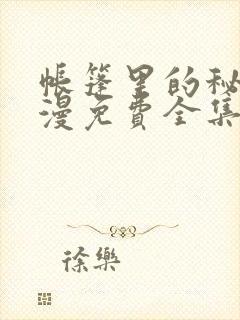 帐篷里的秘
漫免费全集
徐樂